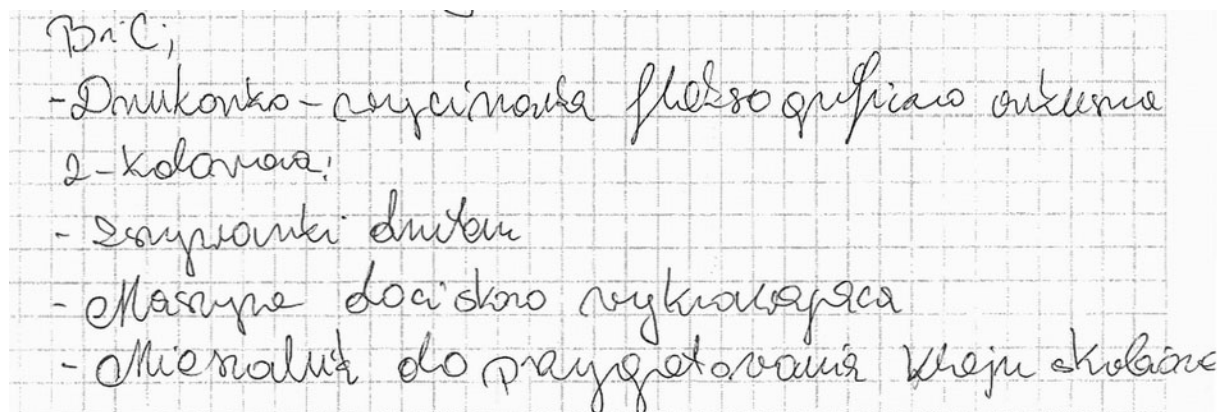 B i C;
- Drukarko-wycinarka fleksograficzno arkuszowa
2-kolorowa;
- Zszywarki drutem
- Maszyna dociskowo wykrawająca
- Mieszalnik do przygotowania kleju